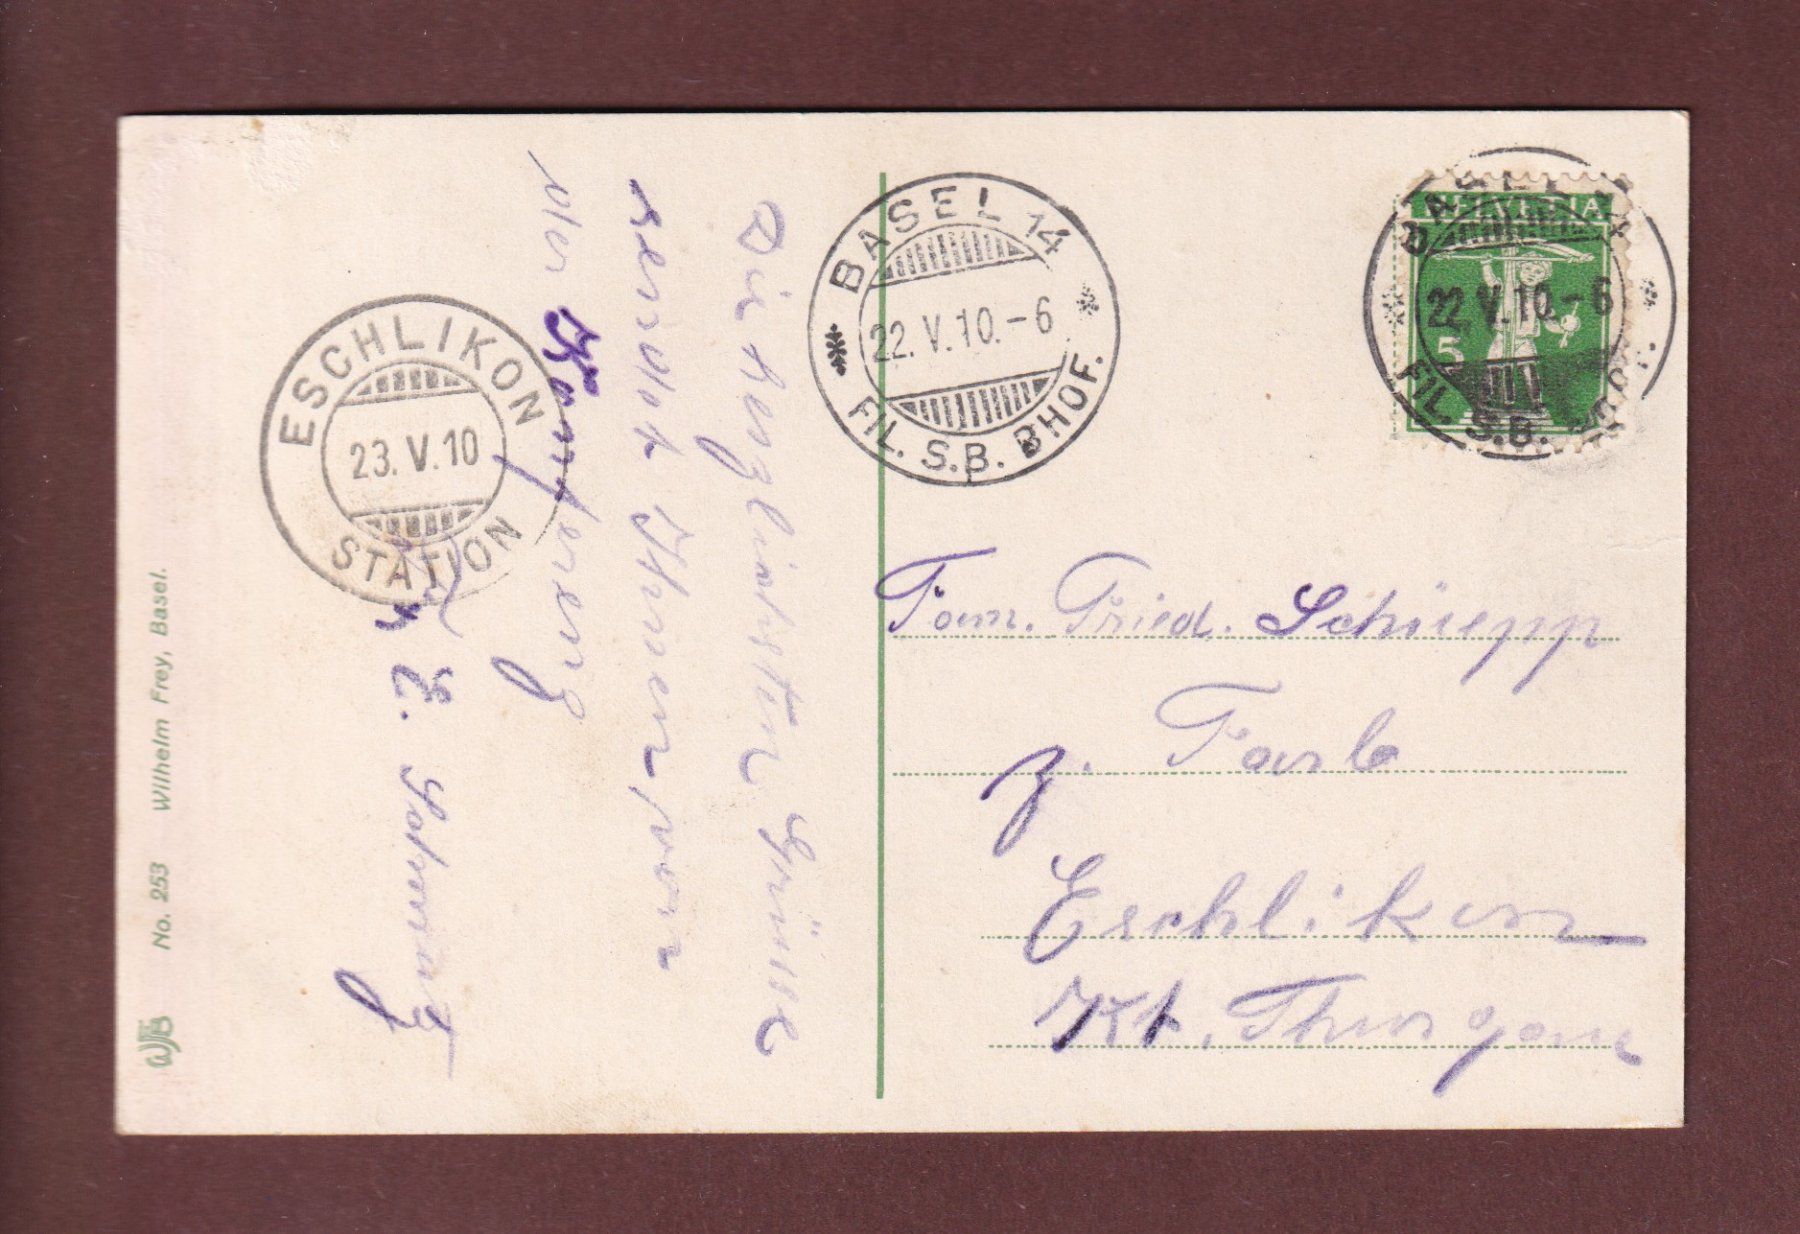 Die herzlichsten Grüsse
sendet Ihnen von
der
E.
ESCHLIKON
23. V. 10
STATION
BASEL 14
22. V. 10. - 6
FIL. S.B. BHOF.
HELVETIA
5
BASEL 14
22. V. 10 - 6
FIL. S.B. BHOF.
Fam. Fried. Schüepp
z. Farb
Eschlikon
Kt. Thurgau
No. 253 Wilhelm Frey, Basel.